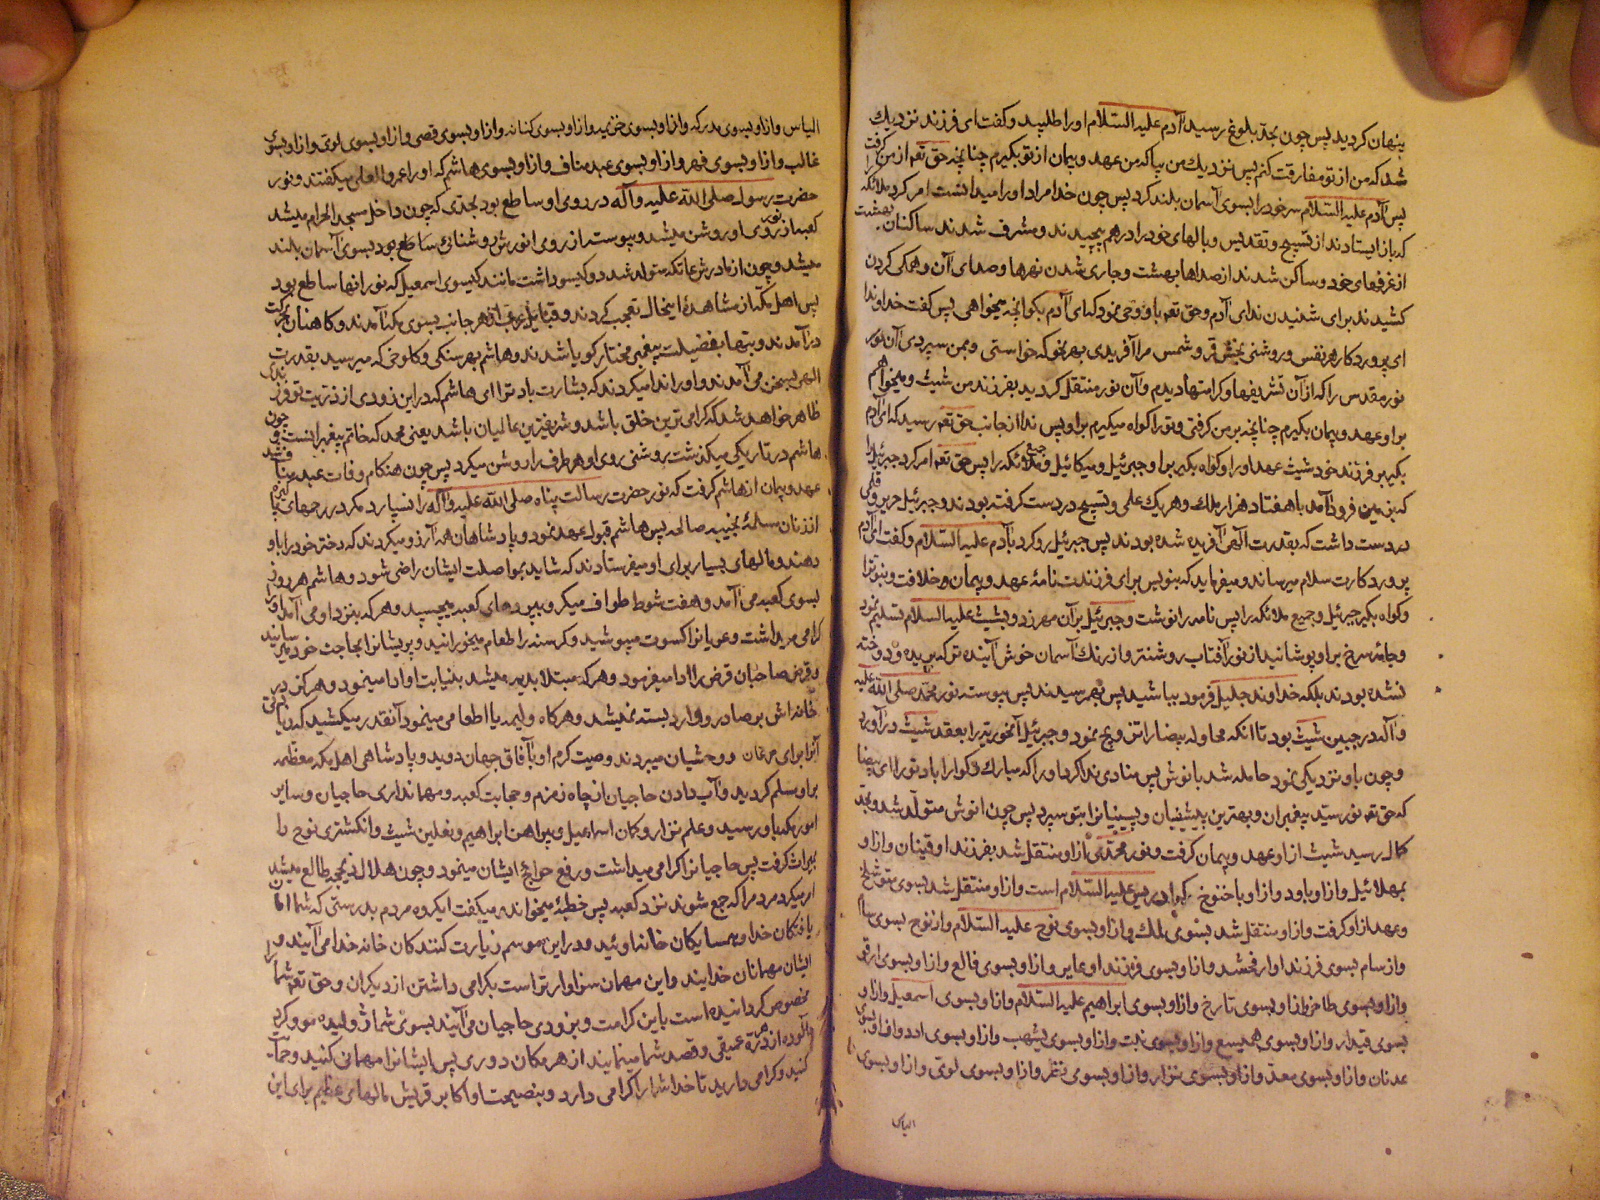 پنهان کردید پس چون بحدّ بلوغ رسید آدم علیه السّلام او را طلبید و گفت ای فرزند نزدیک
شد که من از تو مفارقت کنم پس نزدیک من بیا که من عهد و پیمان از تو بگیرم چنانچه حق تعم از من گرفت
پس آدم علیه السّلام سر خود را بسوی آسمان بلند کرد پس چون خدا مراد او را میدانست امر کرد ملائکه را
که باز ایستادند از تسبیح و تقدیس و بالهای خود را درهم پیچیدند و مشرف شدند ساکنان بهشت
از غرفهای خود و ساکن شدند از صداها بهشت و جاری شدن نهرها و صدای آن و همگی کردن
کشیدند برای شنیدن ندای آدم و حق تعم باو وحی نمود که ای آدم بگو انچه میخواهی پس گفت خداوندا
ای پروردگار هر نفس و روشنی بخش قمر و شمس مرا آفریدی بهر نحو که خواستی و بمن سپردی آن نور
نور مقدس را که از آن تشریفها و کرامتها دیدم و آن نور منتقل گردید بفرزند من شیث و میخواهم
بر او عهد و پیمان بگیرم چنانچه بر من گرفتی و تو را گواه میگیرم بر او پس ندا از جانب حق تعم رسید که ای آدم
بگیر بر فرزند خود شیث عهد او را و گواه بگیر بر او جبرئیل و میکائیل و جمیع ملائکه را پس حق تعم امر کرد جبرئیل را
که بزمین فرود آمد با هفتاد هزار ملک و هر یک علمی و تسبیح در دست گرفته بودند و جبرئیل حریر و قلمی
در دست داشت که بقدرت الهی آفریده شده بودند پس جبرئیل رو کرد بآدم علیه السّلام و گفت ای آدم
پروردگارت سلام میرساند و میفرماید که بنویس برای فرزندت نامهٔ عهد و پیمان و خلافت و نبوّت را
و گواه بگیر جبرئیل و جمیع ملائکه را پس نامه را نوشت و جبرئیل بر آن مهر زد و بشیث علیه السلام تسلیم نمود
و جامهٔ سرخ بر او پوشانید از نور آفتاب روشنتر و از رنگ آسمان خوش آینده‌تر که بریده و دوخته
نشده بودند بلکه خداوند جلیل فرمود بباشید پس بهم رسیدند پس پیوسته نور محمّد صلی الله علیه
و آله در جبین شیث بود تا انکه محاوله بیضا را تزویج نمود و جبرئیل آنحوریّه را بعقد شیث درآورد
و چون باو نزدیکی نمود حامله شد بانوش پس منادی ندا کرد او را که مبارک و گوارا باد تو را ای بیضا
که حق تعم نور سیّد پیغمبران و بهترین پیشینیان و پسینیان را بتو سپرد پس چون انوش متولّد شد و بحدّ
کمال رسید شیث از او عهد و پیمان گرفت و نور محمّدی از او منتقل شد بفرزند او قینان و از او
بمهلائیل و از او بیارد و از او باخنوخ که او ادریس علیه السّلام است و از او منتقل شد بسوی متوشلخ
و عهد از او گرفت و از او منتقل شد بسوی لمک و از او بسوی نوح علیه السّلام و از نوح بسوی سام
و از سام بسوی فرزند او ارفخشد و از او بسوی فرزند او عابر و از او بسوی فالع و از او بسوی ارغو
و از او بسوی و از او بسوی تارخ و از او بسوی ابراهیم علیه السّلام و از او بسوی اسمعیل و از او
بسوی قیدار و از او بسوی همیسع و از او بسوی نبت و از او بسوی یشهب و از او بسوی ادد و از او بسوی
عدنان و از او بسوی معدّ و از او بسوی نزار و از او بسوی و از او بسوی لوی و از او بسوی
الیاس
الیاس و از او بسوی مدرکه و از او بسوی خزیمه و از او بسوی کنانه و از او بسوی قصی و از او بسوی لوی و از او بسوی
غالب و از او بسوی فهر و از او بسوی عبد مناف و از او بسوی هاشم که او را عمرو العلی میگفتند و نور
حضرت رسول صلی الله علیه و آله در روی او ساطع بود بحدّی که چون داخل مسجد الحرام میشد
کعبه از نور روی او روشن میشد و پیوسته از روی انورش روشنائی ساطع بود بسوی آسمان بلند
میشد و چون از مادرش عاتکه متولد شد دو گیسو داشت مانند گیسوی اسمعیل که نور از آنها ساطع بود
پس اهل مکه از مشاهدهٔ اینحال تعجب کردند و قبایل عرب از هر جانب بسوی مکه آمدند و کاهنان بحرکت
درآمدند و بتها بفضیلت پیغمبر مختار گویا شدند و هاشم بهر سنگی و کلوخی که میرسید بقدرت
الهی بسخن می‌آمدند و او را ندا میکردند که بشارت باد تو را ای هاشم که در این زودی از ذرّیت تو فرزندی
ظاهر خواهد شد که گرامی‌ترین خلق باشد و شریفترین عالمیان باشد یعنی محمد که خاتم پیغمبرانست و چون
هاشم در تاریکی میگذشت روشنی روی او هر طرف را روشن میکرد پس چون هنگام وفات عبد مناف شد
عهد و پیمان از هاشم گرفت که نور حضرت رسالت پناه صلی الله علیه و آله را نسپارد مگر در رحمهای پاکیزه
از زنان نجیبه صالحه پس هاشم قبول عهد نمود و پادشاهان همه آرزو میکردند که دختر خود را باو
دهند و مالهای بسیار برای او میفرستادند که شاید بمواصلت ایشان راضی شود و هاشم هر روز
بسوی کعبه می‌آمد و هفت شوط طواف میکرد و بپردهای کعبه میچسپید و هر که بنزد او می‌آمد او را
گرامی میداشت و عریان را کسوت میپوشید و گرسنه را طعام میخورانید و پریشان را بحاجت خود میرسانید
و قرض صاحبان قرض را ادا میفرمود و هر که مبتلا بدیه میشد بنیابت او ادا مینمود و هرگز در
خانه‌اش بر صادر و وارد بسته نمیشد و هرگاه ولیمه یا اطعامی مینمود آنقدر میکشید که زیادتی
آنرا برای مرغان و وحشیان میبردند وصیت کرم او بآفاق جهان دوید و پادشاهی اهل مکه معظمه
بر او مسلم گردید و آب دادن حاجیان از چاه زمزم و حجابت کعبه و مهمانداری حاجیان و سایر
امور مکه باو رسید و علم نزار و کمان اسماعیل و پیراهن ابراهیم و نعلین شیث و انگشتری نوح را
بمیراث گرفت پس حاجیان را گرامی میداشت و رفع حوائج ایشان مینمود و چون هلال ذیحجه طالع میشد
امر میکرد مردم را که جمع شوند نزد کعبه پس خطبه میخواند و میگفت ایگروه مردم بدرستی که شما امان
یافتگان خدا و همسایگان خانه اوئید و در این موسم زیارت کنندگان خانه خدا می‌آیند و
ایشان مهمانان خدایند و این مهمان سزاوارتر است بگرامی داشتن از دیگران و حق تعم شما را
مخصوص گردانیده است باین کرامت و بزودی حاجیان می‌آیند بسوی شما ژولیده مو و گرد
آلوده از هر درّه عمیقی و قصد شما مینمایند از هر مکان دوری پس ایشانرا مهمانی کنید و حمایت
کنید و گرامی دارید تا خدا شما را گرامی دارد و بنصیحت او اکابر قریش مالهای عظیم برای این